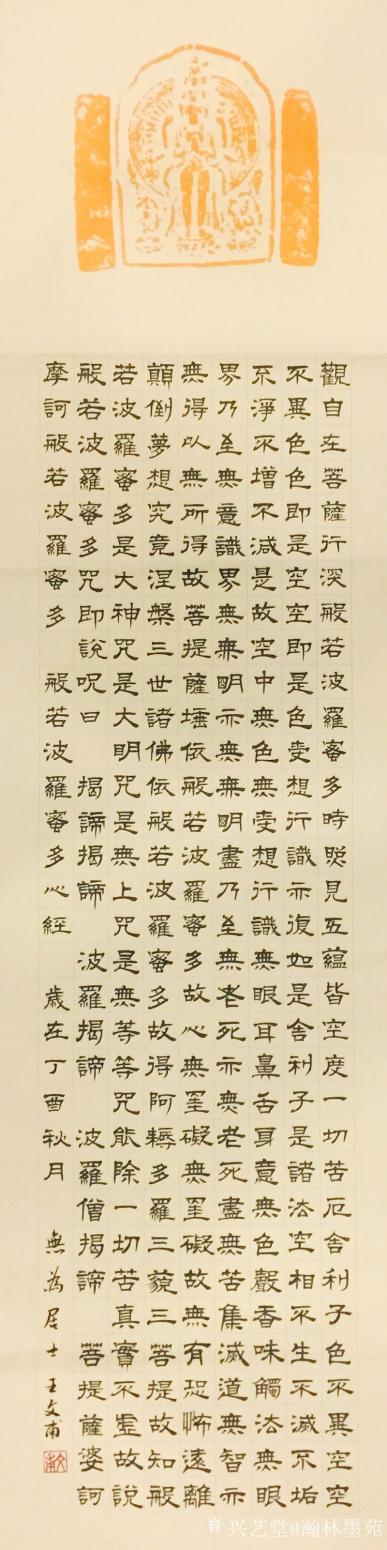 觀自在菩薩行深般若波羅蜜多時照見五蘊皆空度一切苦厄舍利子色不異空空
不異色色即是空空即是色受想行識亦復如是舍利子是諸法空相不生不滅不垢
不淨不增不減是故空中無色無受想行識無眼耳鼻舌身意無色聲香味觸法無眼
界乃至無意識界無無明亦無無明盡乃至無老死亦無老死盡無苦集滅道無智亦
無得以無所得故菩提薩埵依般若波羅蜜多故心無罣礙無罣礙故無有恐怖遠離
顛倒夢想究竟涅槃三世諸佛依般若波羅蜜多故得阿耨多羅三藐三菩提故知般
若波羅蜜多是大神咒是大明咒是無上咒是無等等咒能除一切苦真實不虛故說
般若波羅蜜多咒即說呪曰 揭諦揭諦 波羅揭諦 波羅僧揭諦 菩提薩婆訶
摩訶般若波羅蜜多 般若波羅蜜多心經 歲在丁酉秋月 無為居士王文甫
兴艺堂@瀚林墨苑